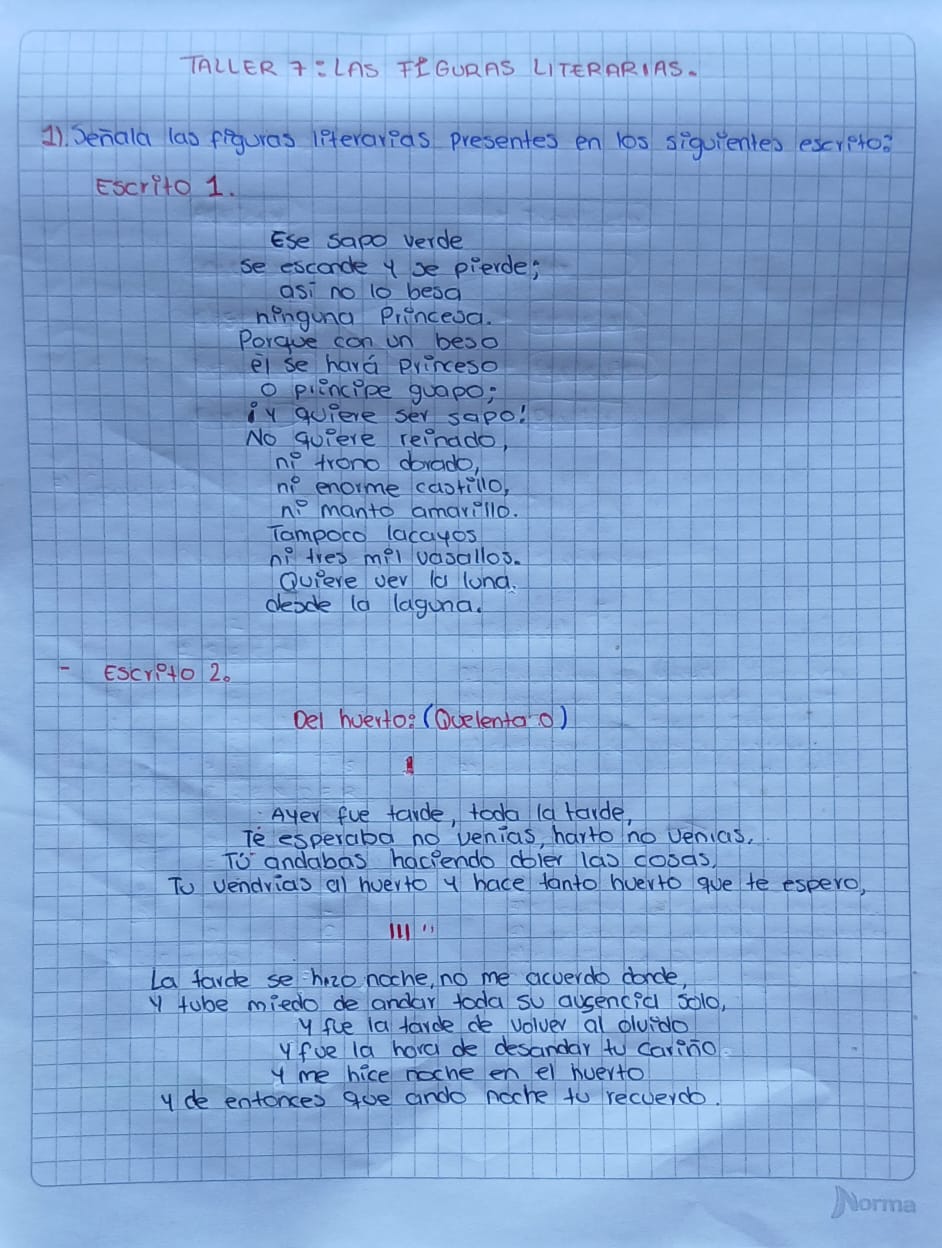 TALLER 7: LAS FIGURAS LITERARIAS.
1). Señala las figuras literarias presentes en los siguientes escrito:
Escrito 1.
Ese sapo verde
se esconde y se pierde;
así no lo besa
ninguna Princesa.
Porque con un beso
él se hará princeso
o príncipe guapo;
¡y quiere ser sapo!
No quiere reinado,
ni trono dorado,
ni enorme castillo,
ni manto amarillo.
Tampoco lacayos
ni tres mil vasallos.
Quiere ver la luna.
desde la laguna.
- Escrito 2.
Del huerto: (Quelentaro)
I
Ayer fue tarde, toda la tarde,
Té esperaba no venías, harto no venias,
Tú andabas haciendo doler las cosas,
Tu vendrías al huerto y hace tanto huerto que te espero,
III "
La tarde se hizo noche, no me acuerdo donde,
Y tube miedo de andar toda su augencia solo,
y fue la tarde de volver al olvido
y fue la hora de desandar tu cariño
y me hice noche en el huerto
y de entonces que ando noche tu recuerdo.
Norma